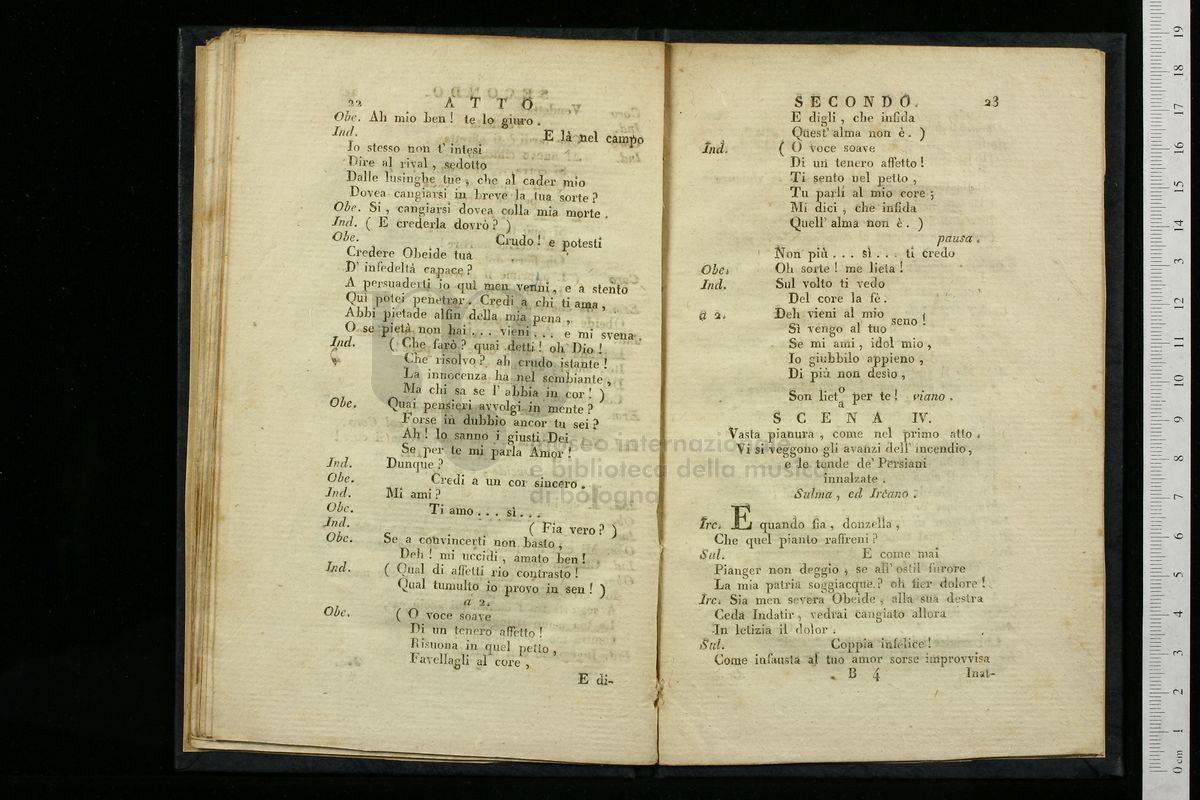 22 ATTO
Obe. Ah mio ben! te lo giuro.
Ind. E là nel campo
Io stesso non t' intesi
Dire al rival, sedotto
Dalle lusinghe tue, che al cader mio
Dovea cangiarsi in breve la tua sorte?
Obe. Sì, cangiarsi dovea colla mia morte.
Ind. ( E crederla dovrò? )
Obe. Crudo! e potesti
Credere Obeide tua
D' infedeltà capace?
A persuaderti io quì men venni, e a stento
Quì potei penetrar. Credi a chi ti ama,
Abbi pietade alfin della mia pena,
O se pietà non hai... vieni... e mi svena.
Ind. ( Che farò? quai detti! oh Dio!
Che risolvo? ah crudo istante!
La innocenza ha nel sembiante,
Ma chi sa se l' abbia in cor! )
Obe. Quai pensieri avvolgi in mente?
Forse in dubbio ancor tu sei?
Ah! lo sanno i giusti Dei
Se per te mi parla Amor!
Ind. Dunque?
Obe. Credi a un cor sincero.
Ind. Mi ami?
Obe. Ti amo... sì...
Ind. ( Fia vero? )
Obe. Se a convincerti non basto,
Deh! mi uccidi, amato ben!
Ind. ( Qual di affetti rio contrasto!
Qual tumulto io provo in sen! )
a 2.
Obe. ( O voce soave
Di un tenero affetto!
Risuona in quel petto,
Favellagli al core,
E di-
SECONDO. 23
E digli, che infida
Quest' alma non è. )
Ind. ( O voce soave
Di un tenero affetto!
Ti sento nel petto,
Tu parli al mio core;
Mi dici, che infida
Quell' alma non è. )
pausa.
Non più... sì... ti credo
Obe. Oh sorte! me lieta!
Ind. Sul volto ti vedo
Del core la fè.
a 2. Deh vieni al mio
Sì vengo al tuo seno!
Se mi ami, idol mio,
Io giubbilo appieno,
Di più non desio,
Son liet o a per te! viano.
SCENA IV.
Vasta pianura, come nel primo atto.
Vi si veggono gli avanzi dell' incendio,
e le tende de' Persiani
innalzate.
Sulma, ed Ircano.
Irc. E quando fia, donzella,
Che quel pianto raffreni?
Sul. E come mai
Pianger non deggio, se all' ostil furore
La mia patria soggiacque? oh fier dolore!
Irc. Sia men severa Obeide, alla sua destra
Ceda Indatir, vedrai cangiato allora
In letizia il dolor.
Sul. Coppia infelice!
Come infausta al tuo amor sorse improvvisa
B 4 Inat-
museo internazionale
e biblioteca della musica
di bologna
0 cm 1 2 3 4 5 6 7 8 9 10 11 12 13 14 15 16 17 18 19